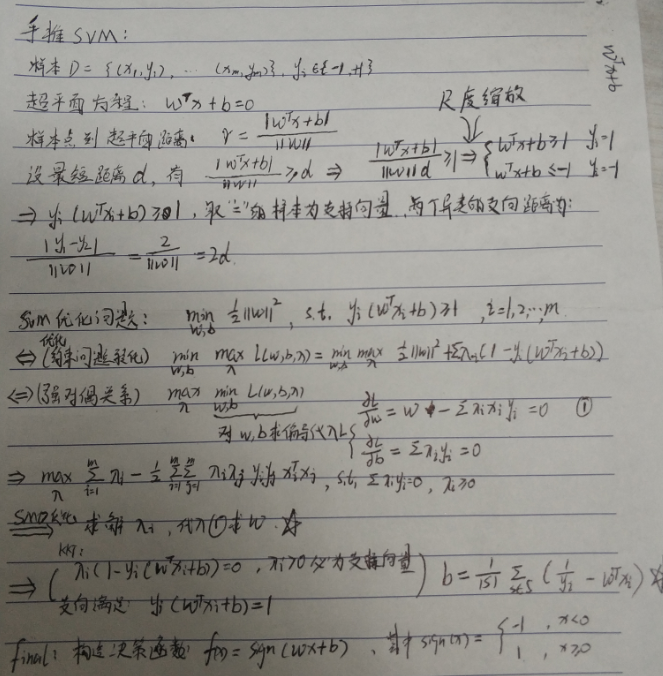 手推SVM:
样本 D = {(x₁, y₁), … (xₘ, yₘ)}, yᵢ ∈ {-1, +1}
超平面方程: wᵀx + b = 0
wᵀx+b
尺度缩放
样本点到超平面距离: r = |wᵀx+b| / ||w||
设最短距离d, 有 |wᵀx+b| / ||w|| ≥ d ⇒ |wᵀx+b| / ||w||d ≥ 1 ⇒ { wᵀx+b ≥ 1 yᵢ=1
wᵀx+b ≤ -1 yᵢ=-1
⇒ yᵢ(wᵀxᵢ+b) ≥ 1, 取"="的样本为支持向量, 两个异类的支向距离为:
|y₁-y₂| / ||w|| = 2 / ||w|| = 2d.
SVM优化问题: min_{w,b} ½||w||², s.t. yᵢ(wᵀxᵢ+b) ≥ 1, i=1,2,…,m.
优化
⇔ (约束问题) min_{w,b} max_λ L(w,b,λ) = min_{w,b} max_λ ½||w||² + Σλᵢ(1-yᵢ(wᵀxᵢ+b))
⇔ (强对偶关系) max_λ min_{w,b} L(w,b,λ)
对w,b求偏导代入L { ∂L/∂w = w - Σλᵢxᵢyᵢ = 0 ①
∂L/∂b = Σλᵢyᵢ = 0
⇒ max_λ Σ_{i=1}^m λᵢ - ½ Σ_{i=1}^m Σ_{j=1}^m λᵢλⱼyᵢyⱼxᵢᵀxⱼ, s.t. Σλᵢyᵢ=0, λᵢ≥0
SMO优化 ⇒ 求解λᵢ, 代入①求w. ☆
KKT:
⇒ ( λᵢ(1-yᵢ(wᵀxᵢ+b))=0, λᵢ>0必为支持向量
支向满足 yᵢ(wᵀxᵢ+b)=1 ) b = 1/|S| Σ_{i∈S} (1/yᵢ - wᵀxᵢ) ☆
final: 构造决策函数 f(x) = sgn(wx+b), 其中sign(x) = { -1, x<0
1, x≥0